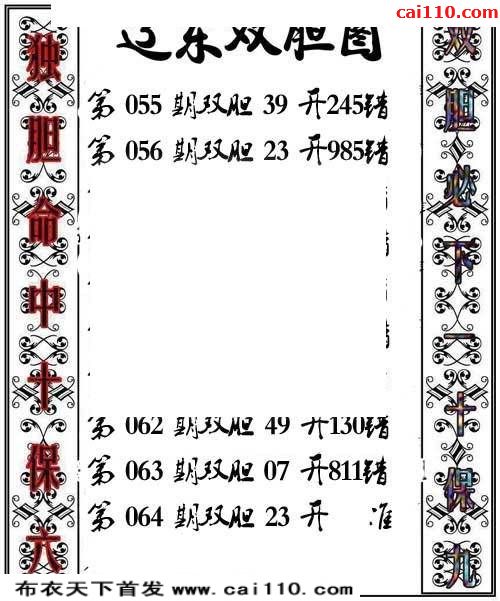 cai110.com
辽东双胆图
第 055 期双胆 39 开245错
第 056 期双胆 23 开985错
第 062 期双胆 49 开130错
第 063 期双胆 07 开811错
第 064 期双胆 23 开 准
独胆命中十保六
双胆必下一十保九
布衣天下首发 www.cai110.com